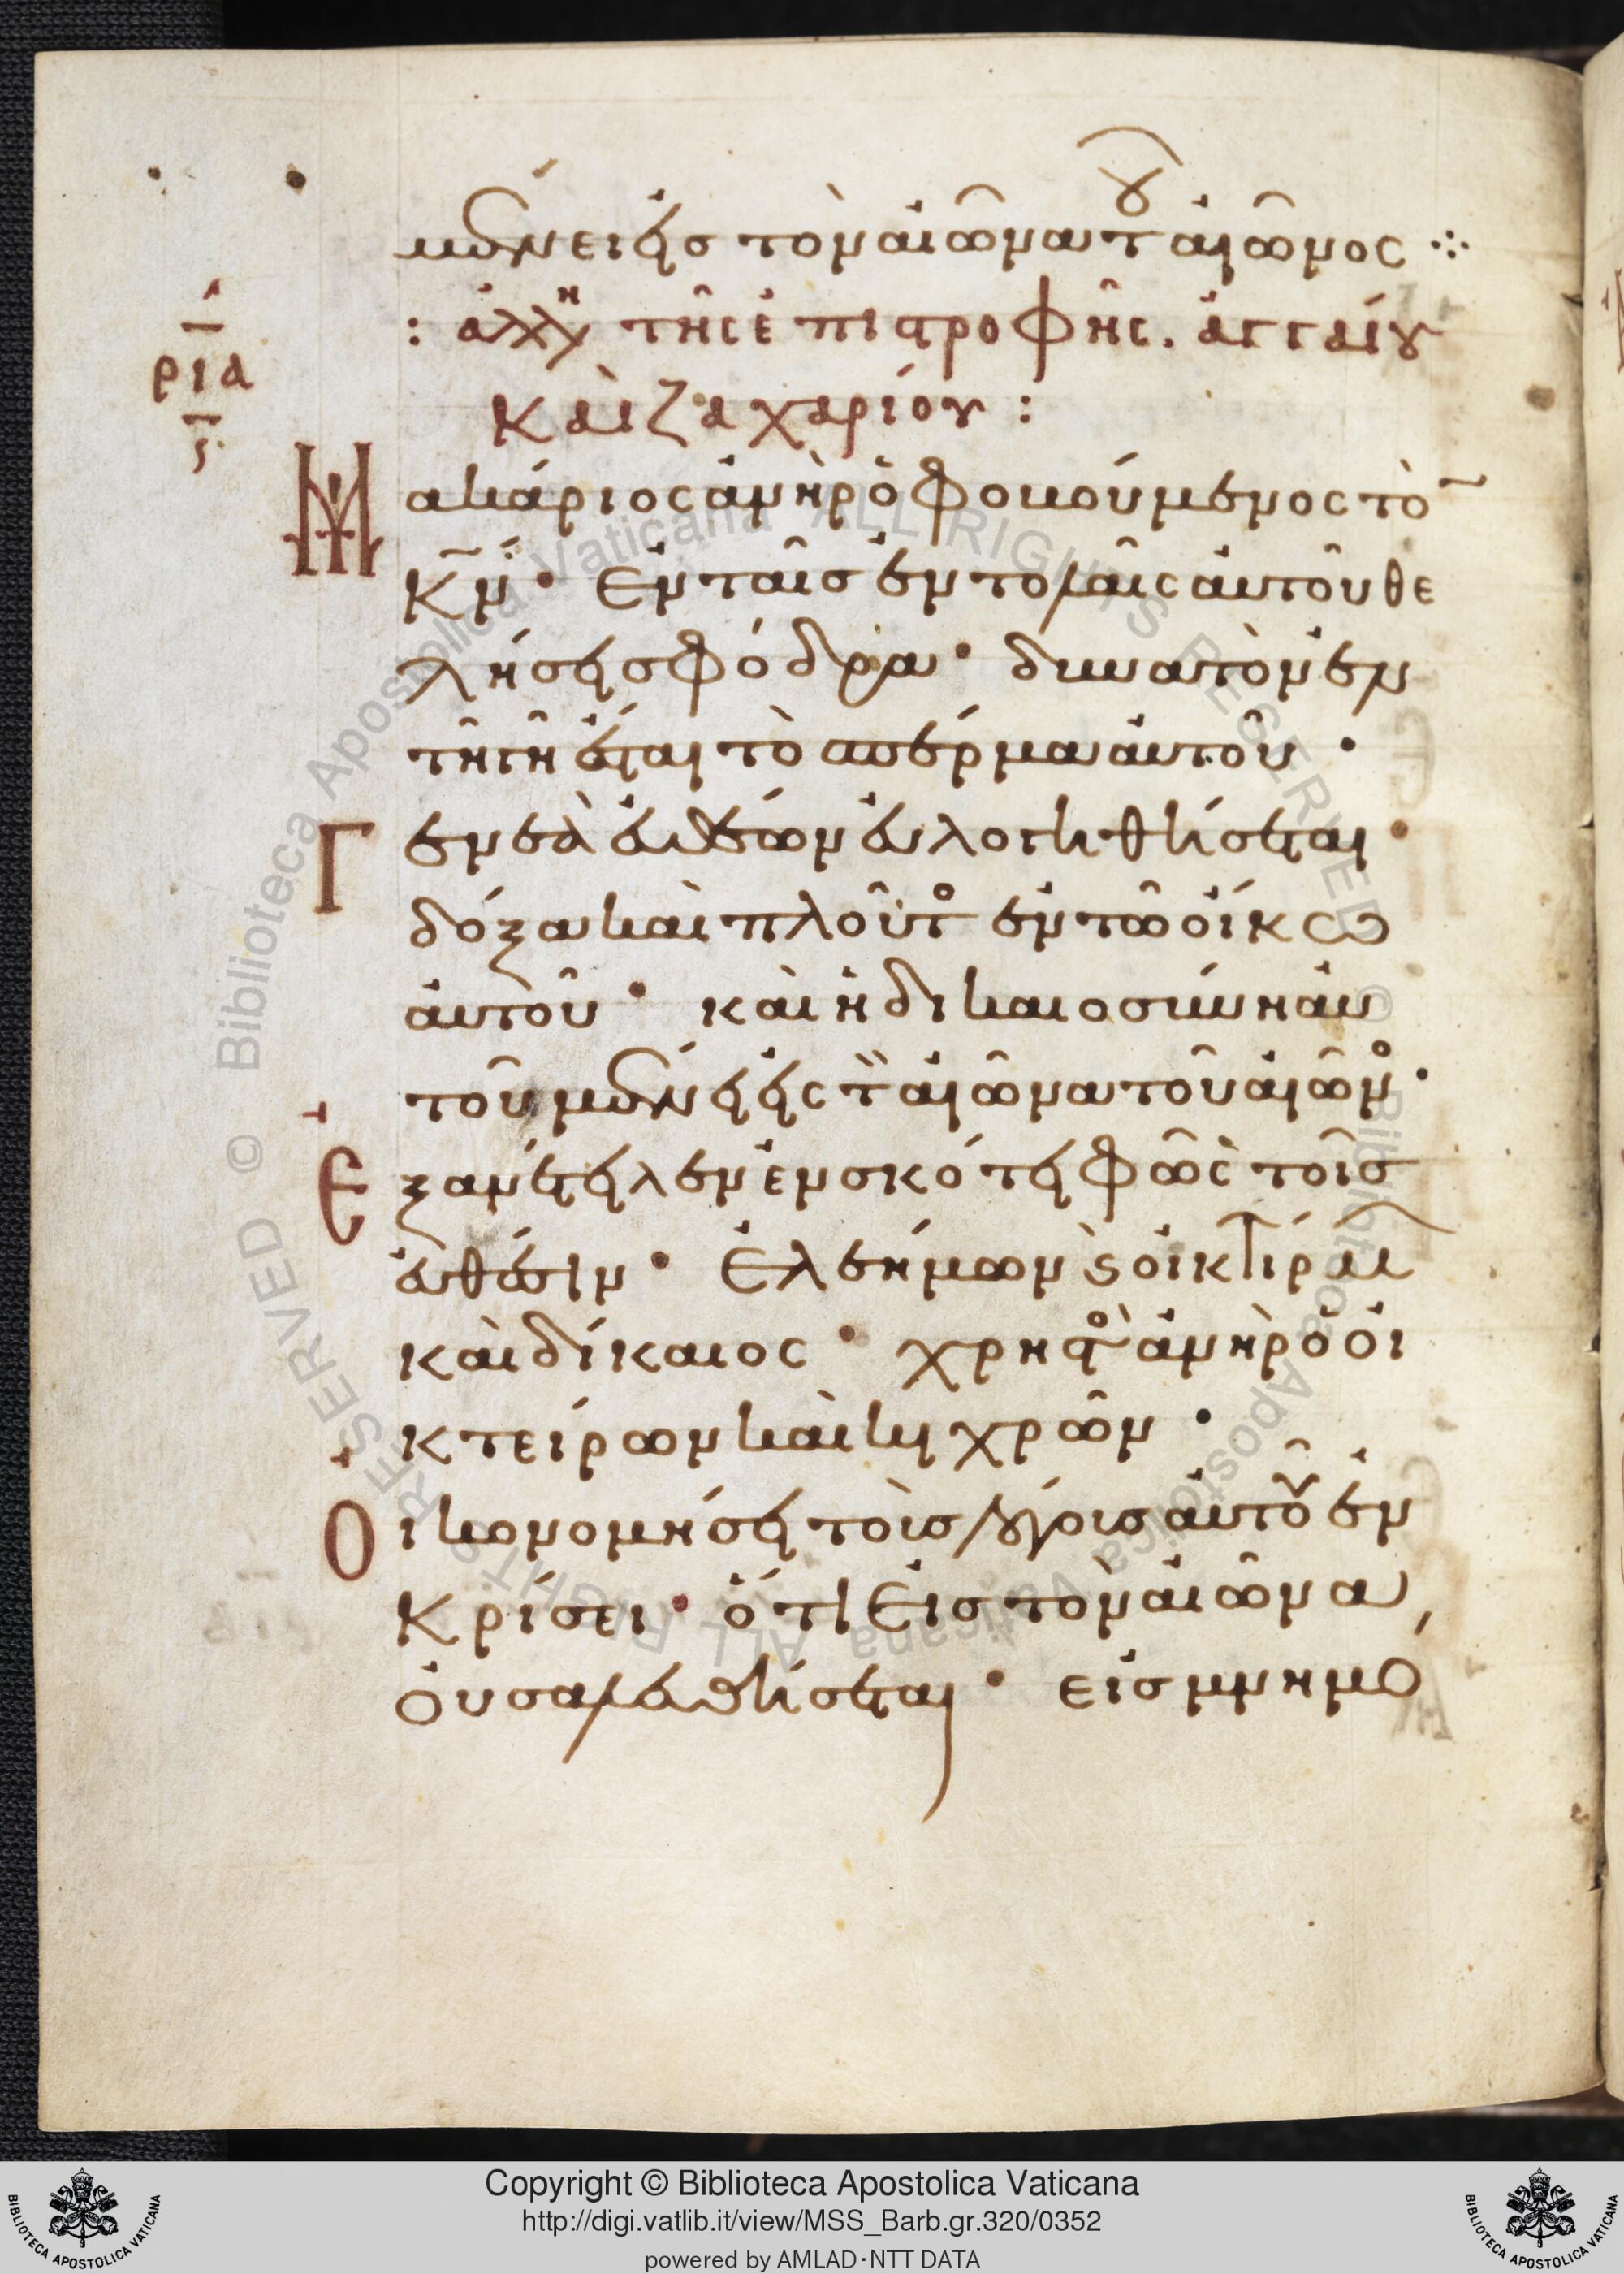 μένει εἰς τὸν αἰῶνα τοῦ αἰῶνος ⁘
: ἀλλη τῆς ἐπιστροφῆς. ἀγγαίου
ρια
καὶ ζαχαρίου :
ς
Μακάριος ἀνὴρ ὁ φοβούμενος τὸν
κν̄ · Ἐν ταῖς ἐντολαῖς αὐτοῦ θε
λήσει σφόδρα · δυνατὸν ἐν
τῆ γῆ ἔσται τὸ σπέρμα αὐτοῦ ·
Γενεὰ εὐθέων εὐλογηθήσεται ·
δόξα καὶ πλοῦτος ἐν τῶ οἴκω
αὐτοῦ · καὶ ἡ δικαιοσύνη αὐ
τοῦ μένει εἰς τὸν αἰῶνα τοῦ αἰῶνος ·
Ἐξανέτειλεν ἐν σκότει φῶς τοῖς
εὐθέσιν · Ἐλεήμων καὶ οἰκτίρμων
καὶ δίκαιος · χρηστὸς ἀνὴρ ὁ οἰ
κτείρων καὶ κιχρῶν ·
Οἰκονομήσει τοὺς λόγους αὐτοῦ ἐν
κρίσει · ὅτι Εἰς τὸν αἰῶνα
οὐ σαλευθήσεται · εἰς μνημό
Copyright © Biblioteca Apostolica Vaticana
http://digi.vatlib.it/view/MSS_Barb.gr.320/0352
powered by AMLAD·NTT DATA